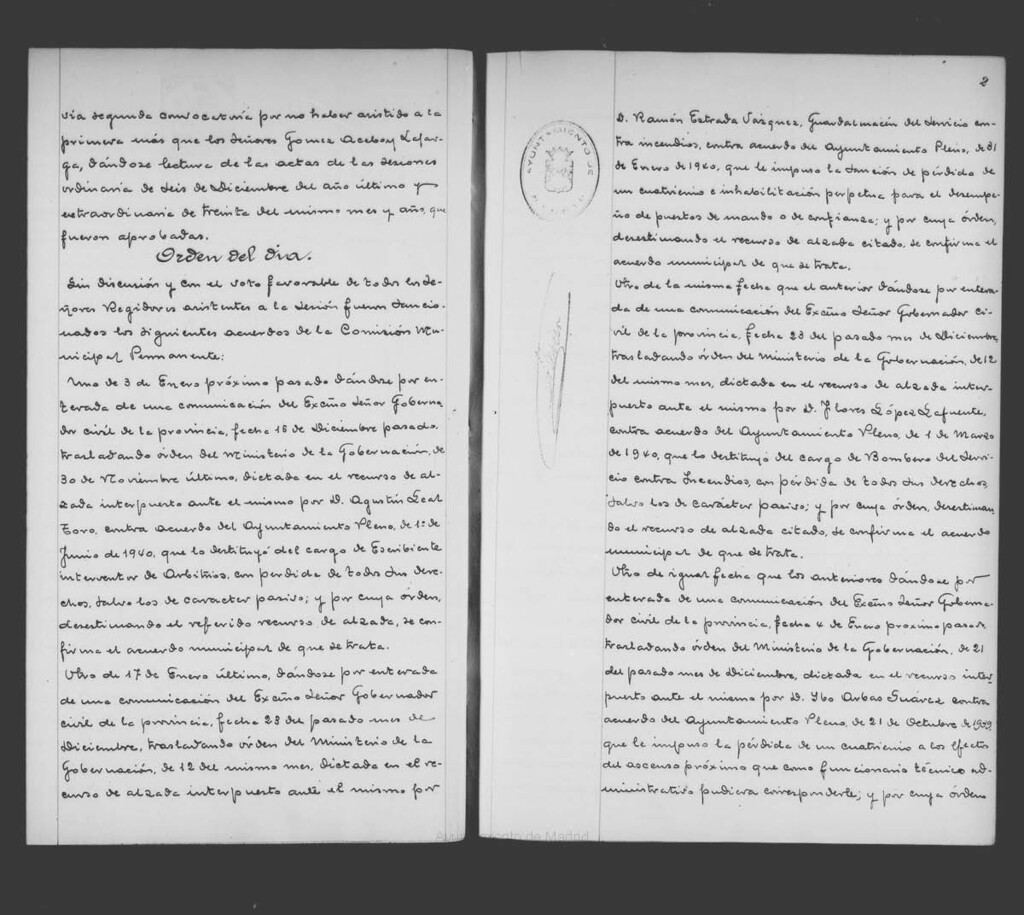 via segunda convocatoria por no haber asistido a la
primera más que los Señores Gomez Acebo y Lafar-
ga, dándose lectura de las actas de las sesiones
ordinaria de seis de Diciembre del año último y
extraordinaria de treinta del mismo mes y año, que
fueron aprobadas.
Orden del dia.
Sin discusión y con el voto favorable de todos los Se-
ñores Regidores asistentes a la sesión fueron sancio-
nados los siguientes acuerdos de la Comisión Mu-
nicipal Permanente:
Uno de 3 de Enero próximo pasado dándose por en-
terada de una comunicación del Excmo Señor Goberna-
dor civil de la provincia, fecha 16 de Diciembre pasado,
trasladando orden del Ministerio de la Gobernación, de
30 de Noviembre último, dictada en el recurso de al-
zada interpuesto ante el mismo por D. Agustín Leal
Toro, contra acuerdo del Ayuntamiento Pleno, de 1º de
Junio de 1940, que lo destituyó del cargo de Escribiente
interventor de Arbitrios, con perdida de todos sus dere-
chos, salvo los de caracter pasivo; y por cuya órden,
desestimando el referido recurso de alzada, se con-
firma el acuerdo municipal de que se trata.
Otro de 17 de Enero último, dándose por enterada
de una comunicación del Excmo Señor Gobernador
civil de la provincia, fecha 23 del pasado mes de
Diciembre, trasladando órden del Ministerio de la
Gobernación, de 12 del mismo mes, dictada en el re-
curso de alzada interpuesto ante el mismo por
2
D. Ramón Estrada Vázquez, Guardalmacén del Servicio con-
tra incendios, contra acuerdo del Ayuntamiento Pleno, de 31
de Enero de 1940, que le impuso la sanción de pérdida de
un cuatrienio e inhabilitación perpetua para el desempe-
ño de puestos de mando o de confianza; y por cuya órden,
desestimando el recurso de alzada citado, se confirma el
acuerdo municipal de que se trata.
Otro de la misma fecha que el anterior dándose por entera-
da de una comunicación del Excmo Señor Gobernador ci-
vil de la provincia, fecha 23 del pasado mes de Diciembre,
trasladando órden del Ministerio de la Gobernación, de 12
del mismo mes, dictada en el recurso de alzada inter-
puesto ante el mismo por D. Flores López Lafuente,
contra acuerdo del Ayuntamiento Pleno, de 1 de Marzo
de 1940, que lo destituyó del cargo de Bombero del Servi-
cio contra Incendios, con pérdida de todos sus derechos,
salvo los de carácter pasivo; y por cuya órden, desestiman-
do el recurso de alzada citado, se confirma el acuerdo
municipal de que se trata.
Otro de igual fecha que los anteriores dándose por
enterada de una comunicación del Excmo Señor Goberna-
dor civil de la provincia, fecha 4 de Enero proximo pasado
trasladando órden del Ministerio de la Gobernación, de 21
del pasado mes de Diciembre, dictada en el recurso inter-
puesto ante el mismo por D. Ybo Arbas Suárez contra
acuerdo del Ayuntamiento Pleno, de 21 de Octubre de 1939,
que le impuso la pérdida de un cuatrienio a los efectos
del ascenso próximo que como funcionario técnico ad-
ministrativo pudiera corresponderle; y por cuya órden
AYUNTAMIENTO DE
Ayuntamiento de Madrid